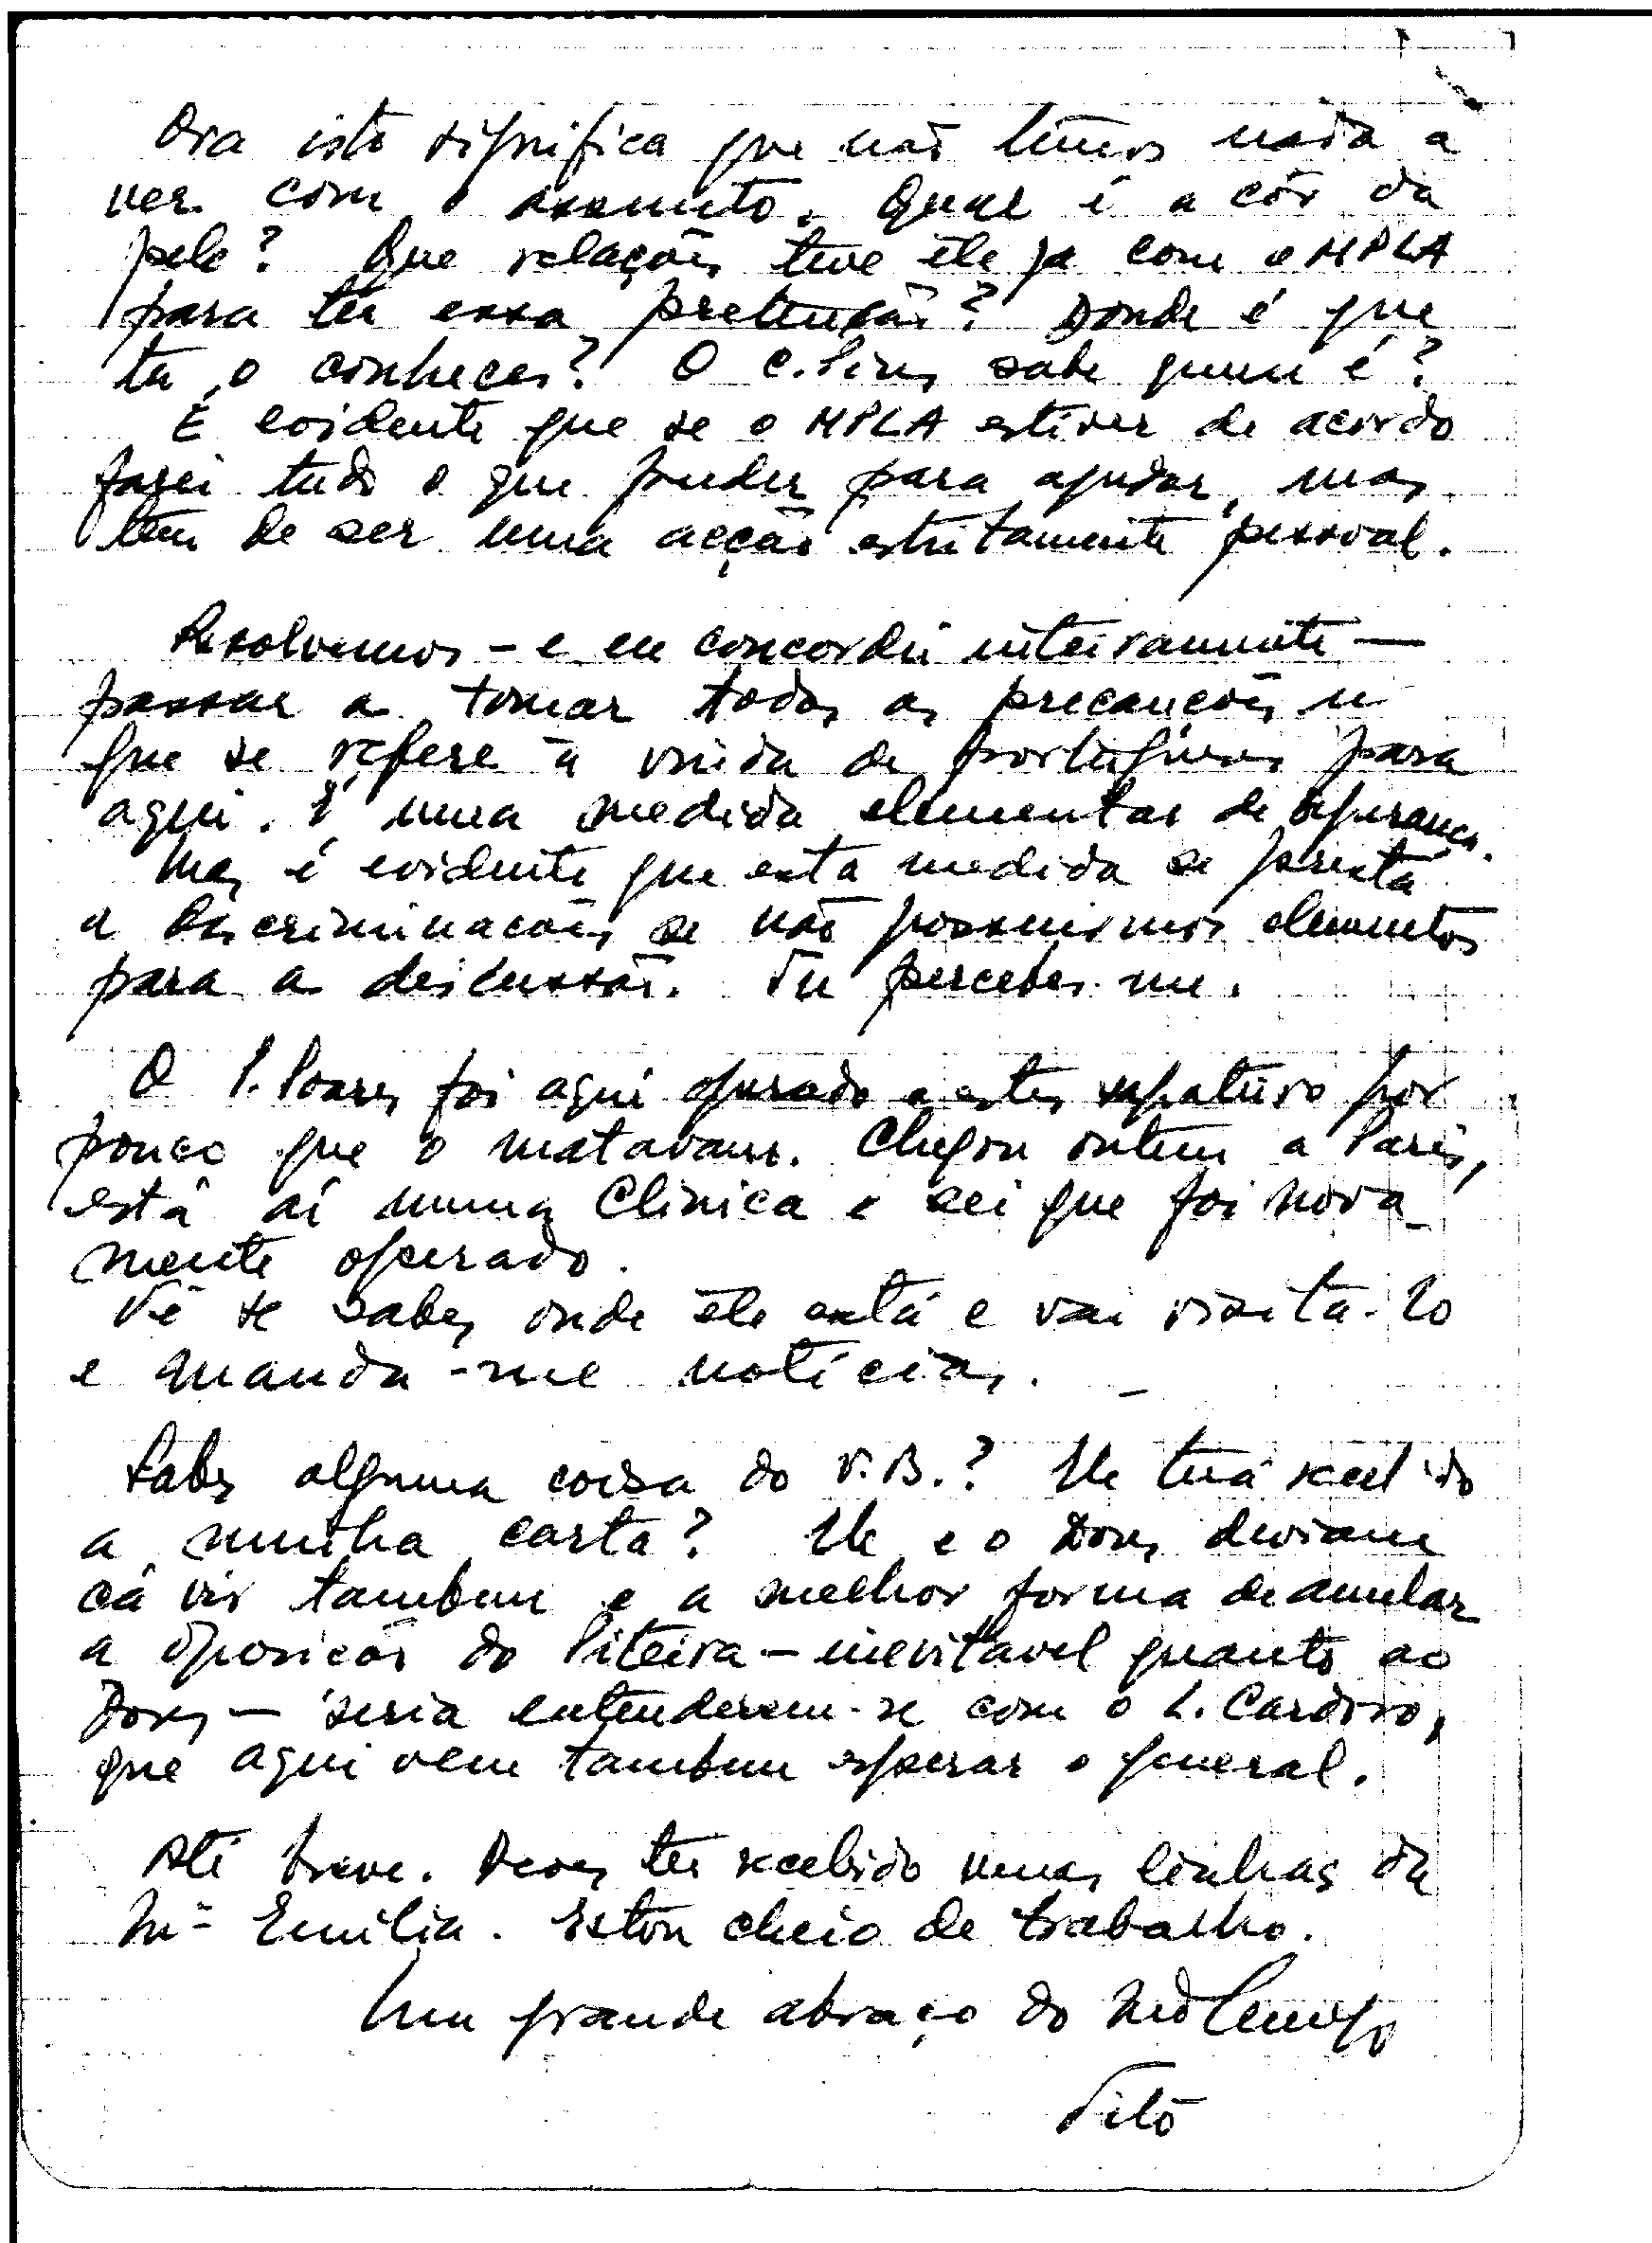 Ora isto significa que não temos nada a
ver com o assunto. Qual é a côr da
pele? Que relações teve êle já com o MPLA
para ter essa pretensão? Donde é que
tu o conheces? O C. Pires sabe quem é?
É evidente que se o MPLA estiver de acordo
farei tudo o que puder para ajudar, mas
tem de ser uma acção estritamente pessoal.
Resolvemos - e eu concordei inteiramente —
passar a tomar todas as precauções n
que se refere à vinda de portugueses para
aqui. É uma medida elementar de segurança.
Mas é evidente que esta medida se presta
a discriminações se não possuirmos elementos
para a discussão. Tu percebes-me.
O P. Soares foi aqui operado e estes por
pouco que o matavam. Chegou ontem a Paris,
está aí numa Clinica e sei que foi nova-
mente operado.
Vê se sabes onde êle está e vai visitá-lo
e manda-me notícias. -
Sabes alguma coisa do V.B.? Ele terá recebido
a minha carta? Ele e o Dores deviam
cá vir tambem e a melhor forma de anular
a oposição do Piteira - inevitavel quanto ao
Dores - seria entenderem-se com o L. Cardoso,
que aqui vem tambem esperar o general.
Até breve. Deves ter recebido umas linhas da
Mª Emilia. Estou cheio de trabalho.
Um grande abraço do